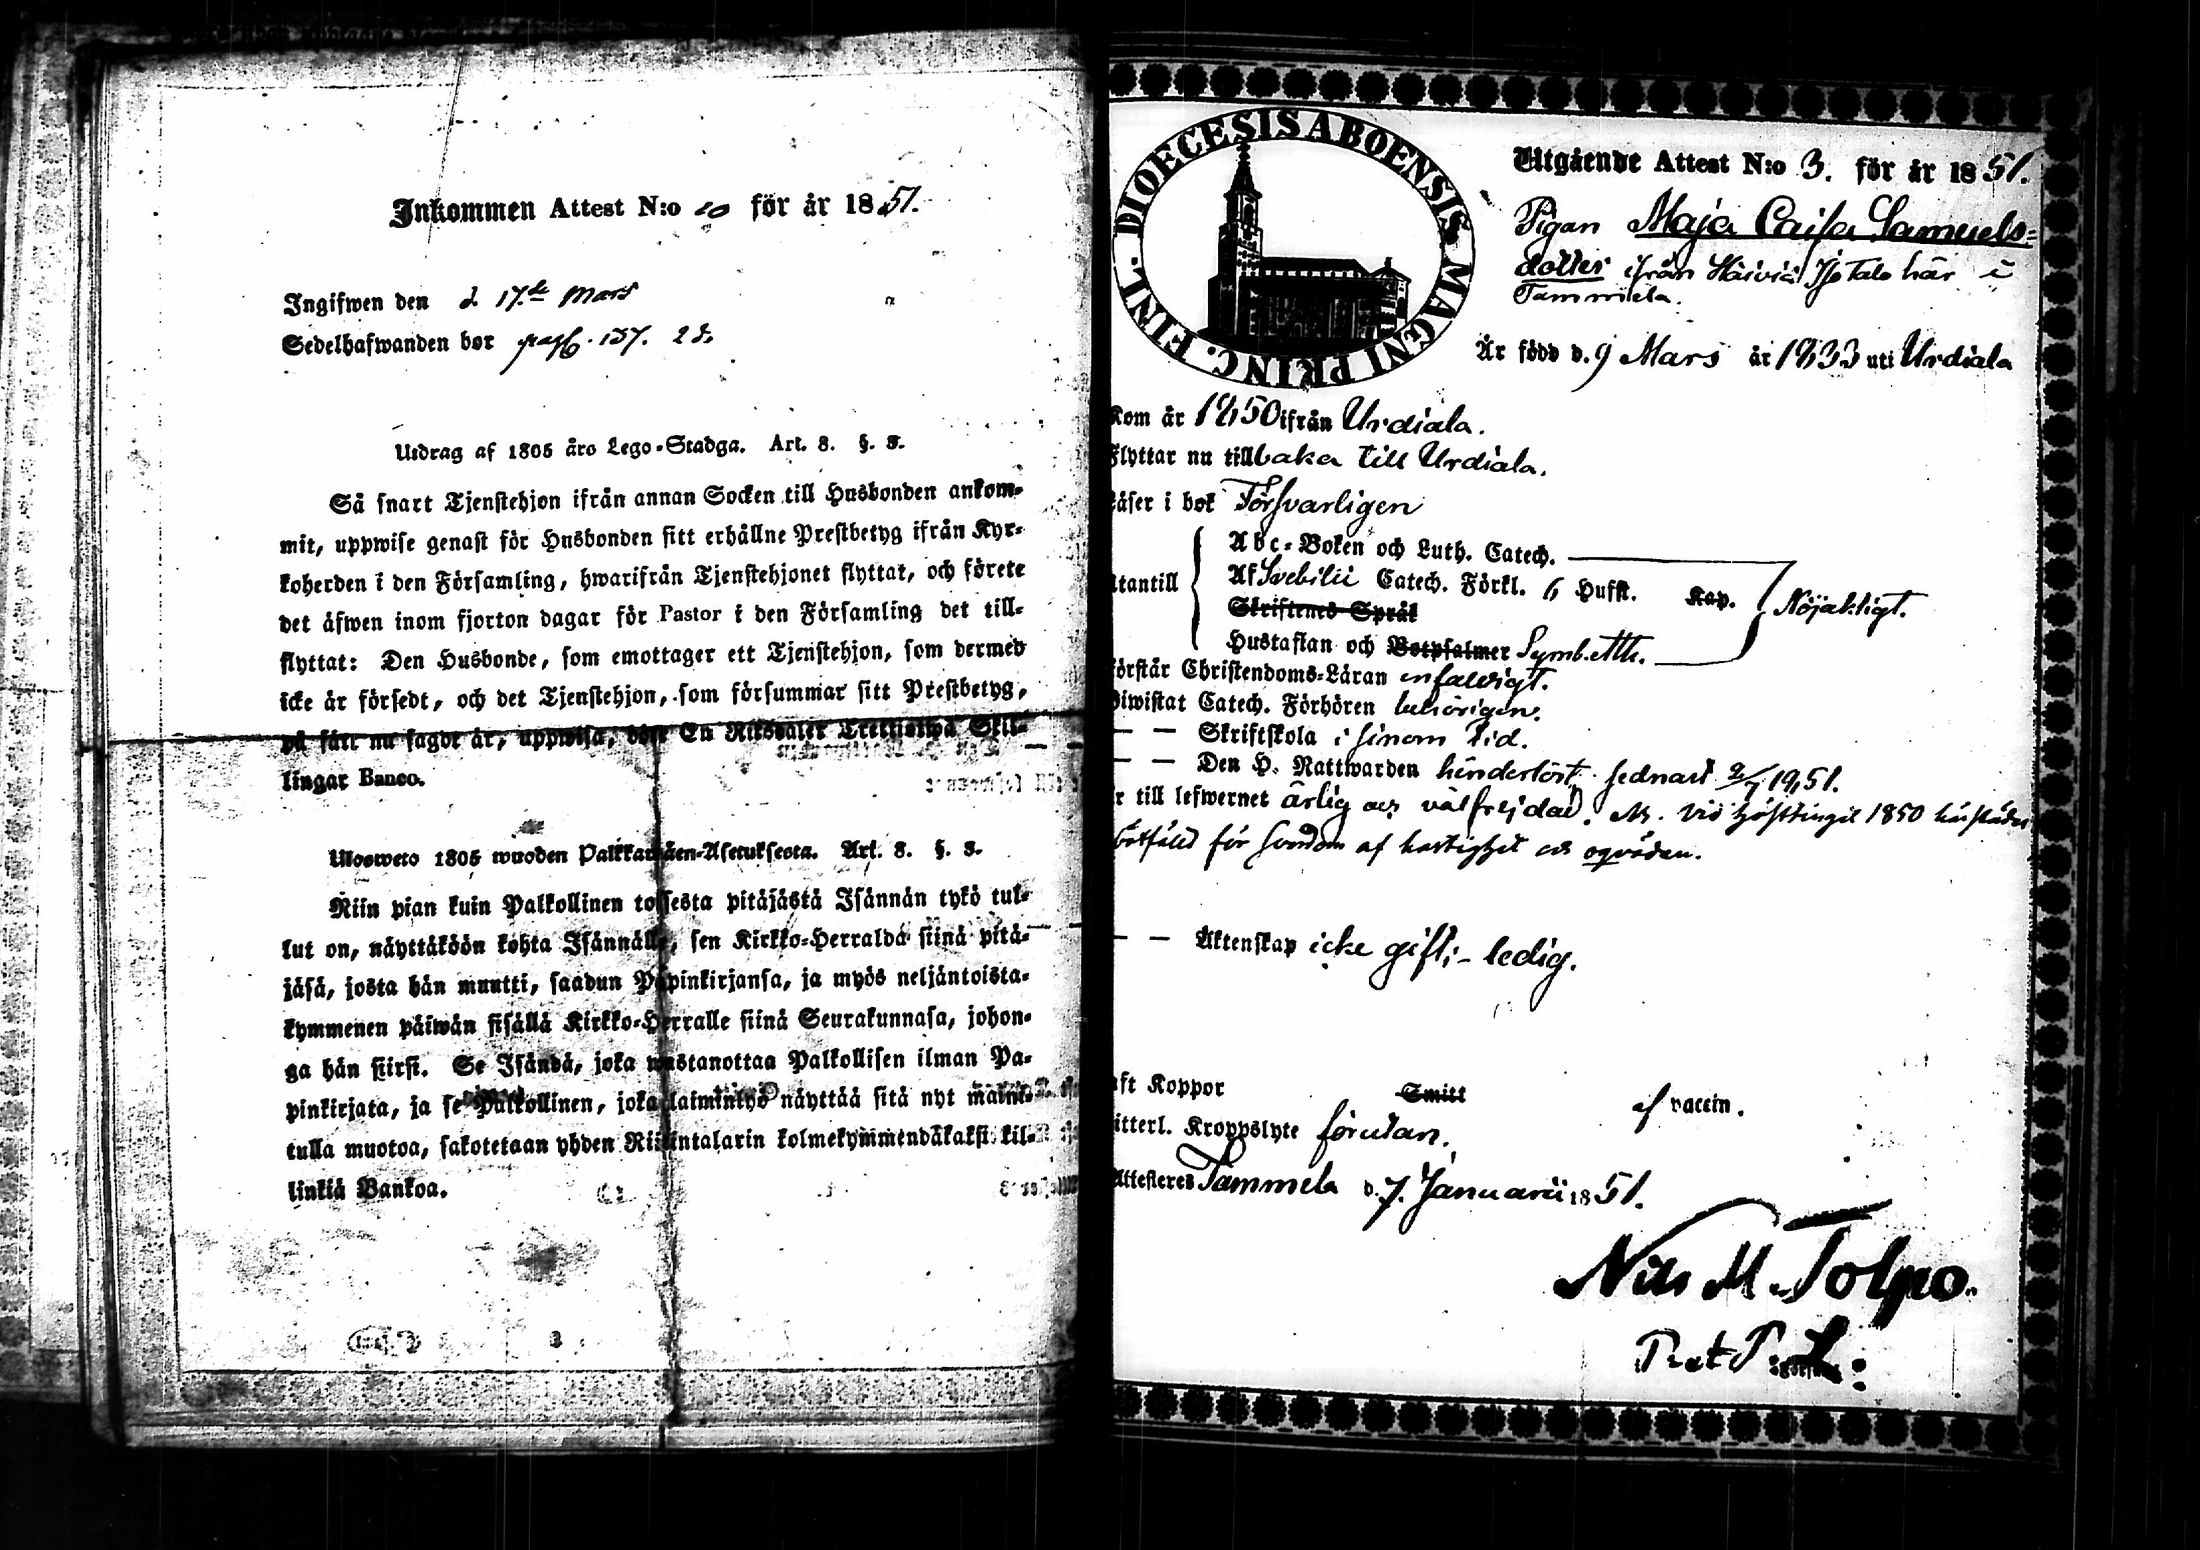 Inkommen Attest N:o 20 för år 1851.
Ingifwen den d. 17de Mars
Sedelhafwanden bor pag. 137. 2 d.
Utdrag af 1805 års Lego-Stadga. Art. 8. §. 3.
Så snart Tjenstehjon ifrån annan Socken till Husbonden ankom-
mit, uppwise genast för Husbonden sitt erhållne Prestbetyg ifrån Kyr-
koherden i den Församling, hwarifrån Tjenstehjonet flyttat, och förete
det äfwen inom fjorton dagar för Pastor i den Församling det till-
flyttat: Den Husbonde, som emottager ett Tjenstehjon, som dermed
icke är försedt, och det Tjenstehjon, som försummar sitt Prestbetyg,
på sätt nu sagdt är, uppwisa, böte En Riksdaler Trettiotwå Skil-
lingar Banco.
Ulosweto 1805 wuoden Palkkawäen-Asetuksesta. Art. 8. §. 3.
Niin pian kuin Palkollinen toisesta pitäjästä Isännän tykö tul-
lut on, näyttäköön kohta Isännälle, sen Kirkko-Herralda siinä pitä-
jäsä, josta hän muutti, saadun Papinkirjansa, ja myös neljäntoista-
kymmenen päiwän sisällä Kirkko-Herralle siinä Seurakunnasa, johon-
ga hän siirsi. Se Isändä, joka wastanottaa Palkollisen ilman Pa-
pinkirjata, ja se Palkollinen, joka laiminlyö näyttää sitä nyt maini-
tulla muotoa, sakotetaan yhden Riikintalarin kolmekymmendäkaksi kil-
linkiä Bankoa.
DIOECESIS ABOENSIS MAGNI PRINC. FINL.
Utgående Attest N:o 3. för år 1851.
Pigan Maja Caisa Samuels-
dotter ifrån här i
Tammela.
Är född d. 9 Mars år 1833 uti Urdiala
Kom år 1850 ifrån Urdiala.
Flyttar nu tillbaka till Urdiala.
Läser i bok Försvarligen
Abc-Boken och Luth. Catech.
Utantill Af Svebilii Catech. Förkl. 6 Hufst. Kap. Nöjaktigt.
Skriftenes Språk
Hustaflan och Botpsalmer Symb. Ath.
Förstår Christendoms-Läran enfaldigt.
Biwistat Catech. Förhören behörigen.
— — Skriftskola i sinom tid.
— — Den H. Nattwarden sednast
Är till lefwernet ärlig och välfrejdad. Nb. vid Hösttinget 1850
botfälld för af hastighet och oqvädan.
— — Äktenskap icke gift; ledig.
Haft Koppor Smitt af vaccin.
Ytterl. Kroppslyte förutan.
Attesteres Tammela d. 7. Januarii 1851.
Nils M. Tolpo.